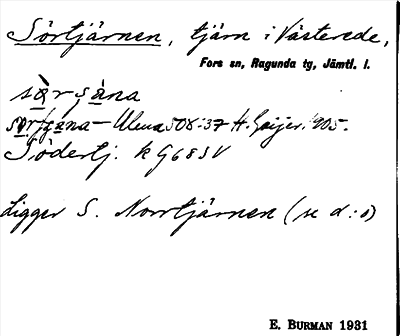 Sörtjärnen, tjärn i Västerede,
Fors sn, Ragunda tg, Jämtl. l.
sàrṣàna
Ulma 508:37 H. Geijer. 1905.
Södertj. k G68SV
Ligger S. Norrtjärnen (se d:o)
E. BURMAN 1931